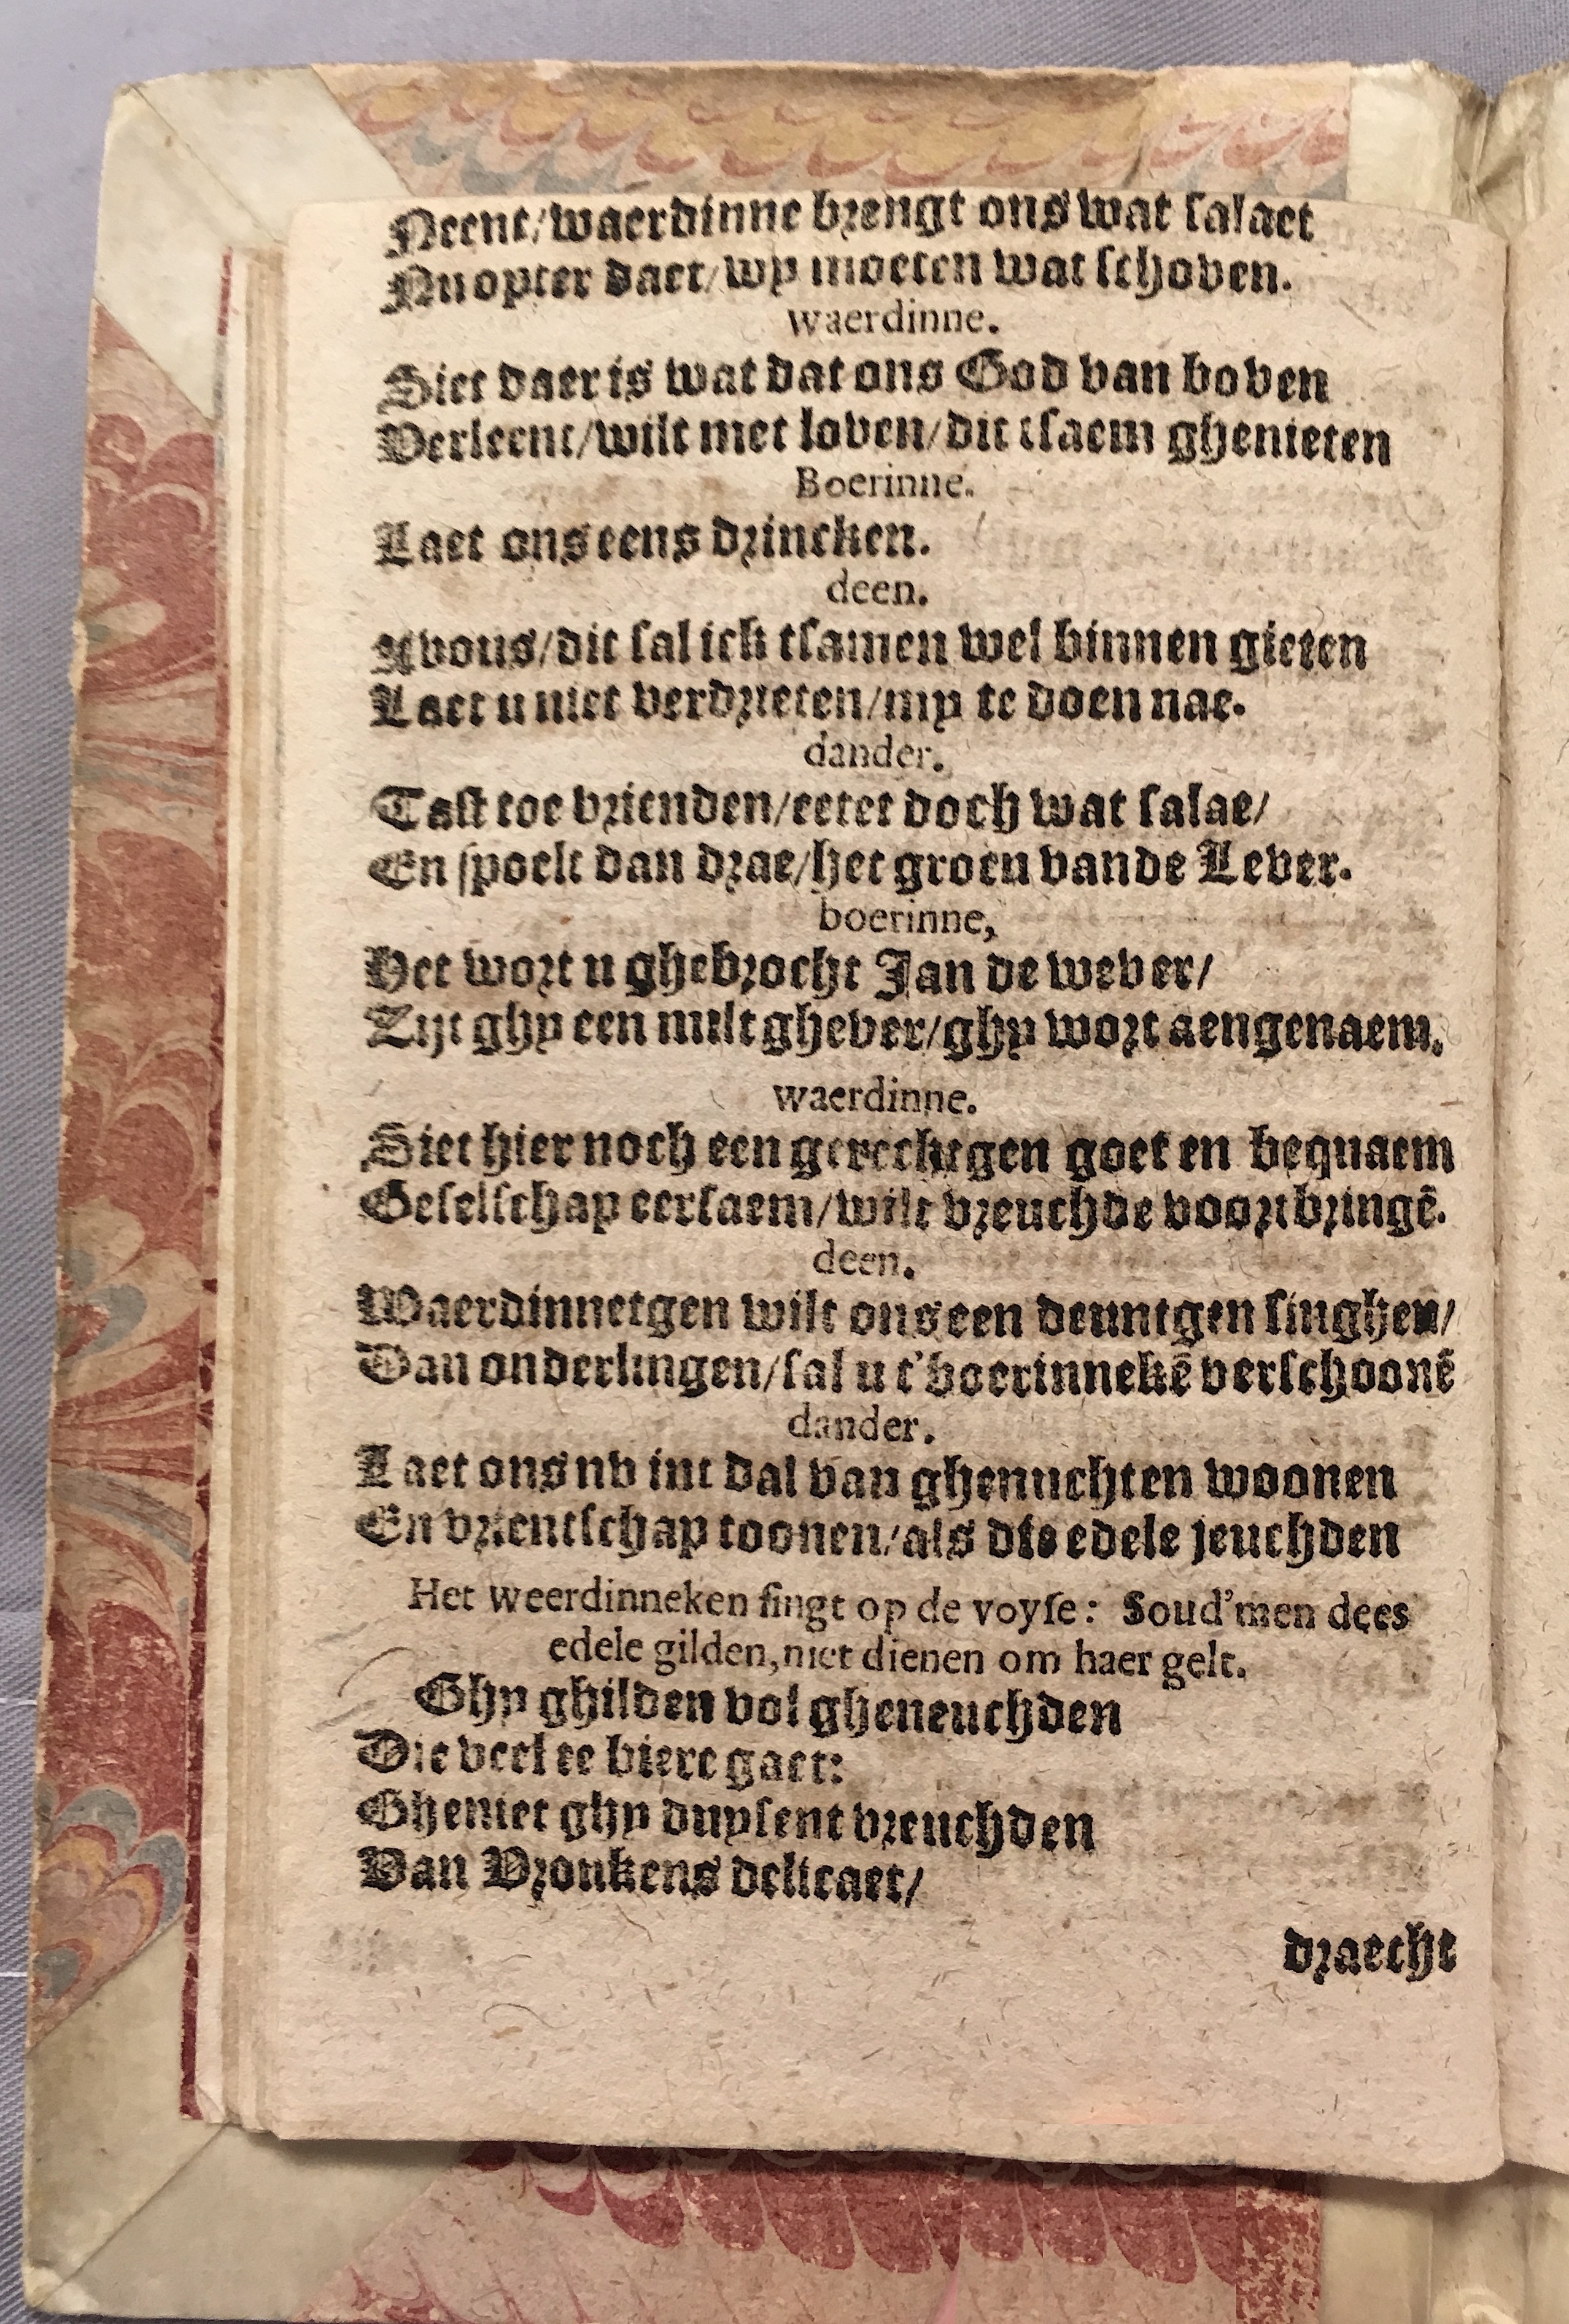 Neent/waerdinne brengt ons wat salaet
Nu opter daet/wy moeten wat schoven.
waerdinne.
Siet daer is wat dat ons God van boven
Verleent/wilt met loven/dit tsaem ghenieten
Boerinne.
Laet ons eens drincken.
deen.
Avous/dit sal ick tsamen wel binnen gieten
Laet u niet verdrieten/my te doen nae.
dander.
Tast toe vrienden/eetet doch wat salae/
En spoelt dan drae/het groen vande Lever.
boerinne,
Het wort u ghebrocht Jan de wever/
Zijt ghy een milt ghever/ghy wort aengenaem.
waerdinne.
Siet hier noch een gerechtgen goet en bequaem
Geselschap eersaem/wilt vreuchde voort bringē.
deen.
Waerdinnetgen wilt ons een deuntgen singhen/
Dan onderlingen/sal u t'boerinnekē verschoonē
dander.
Laet ons nv int dal van ghenuchten woonen
En vrientschap toonen/als die edele jeuchden
Het weerdinneken singt op de voyse: Soud'men dees
edele gilden, niet dienen om haer gelt.
Ghy ghilden vol gheneuchden
Die veel te biere gaet:
Gheniet ghy duysent vreuchden
Van Vroukens delicaet/
draecht